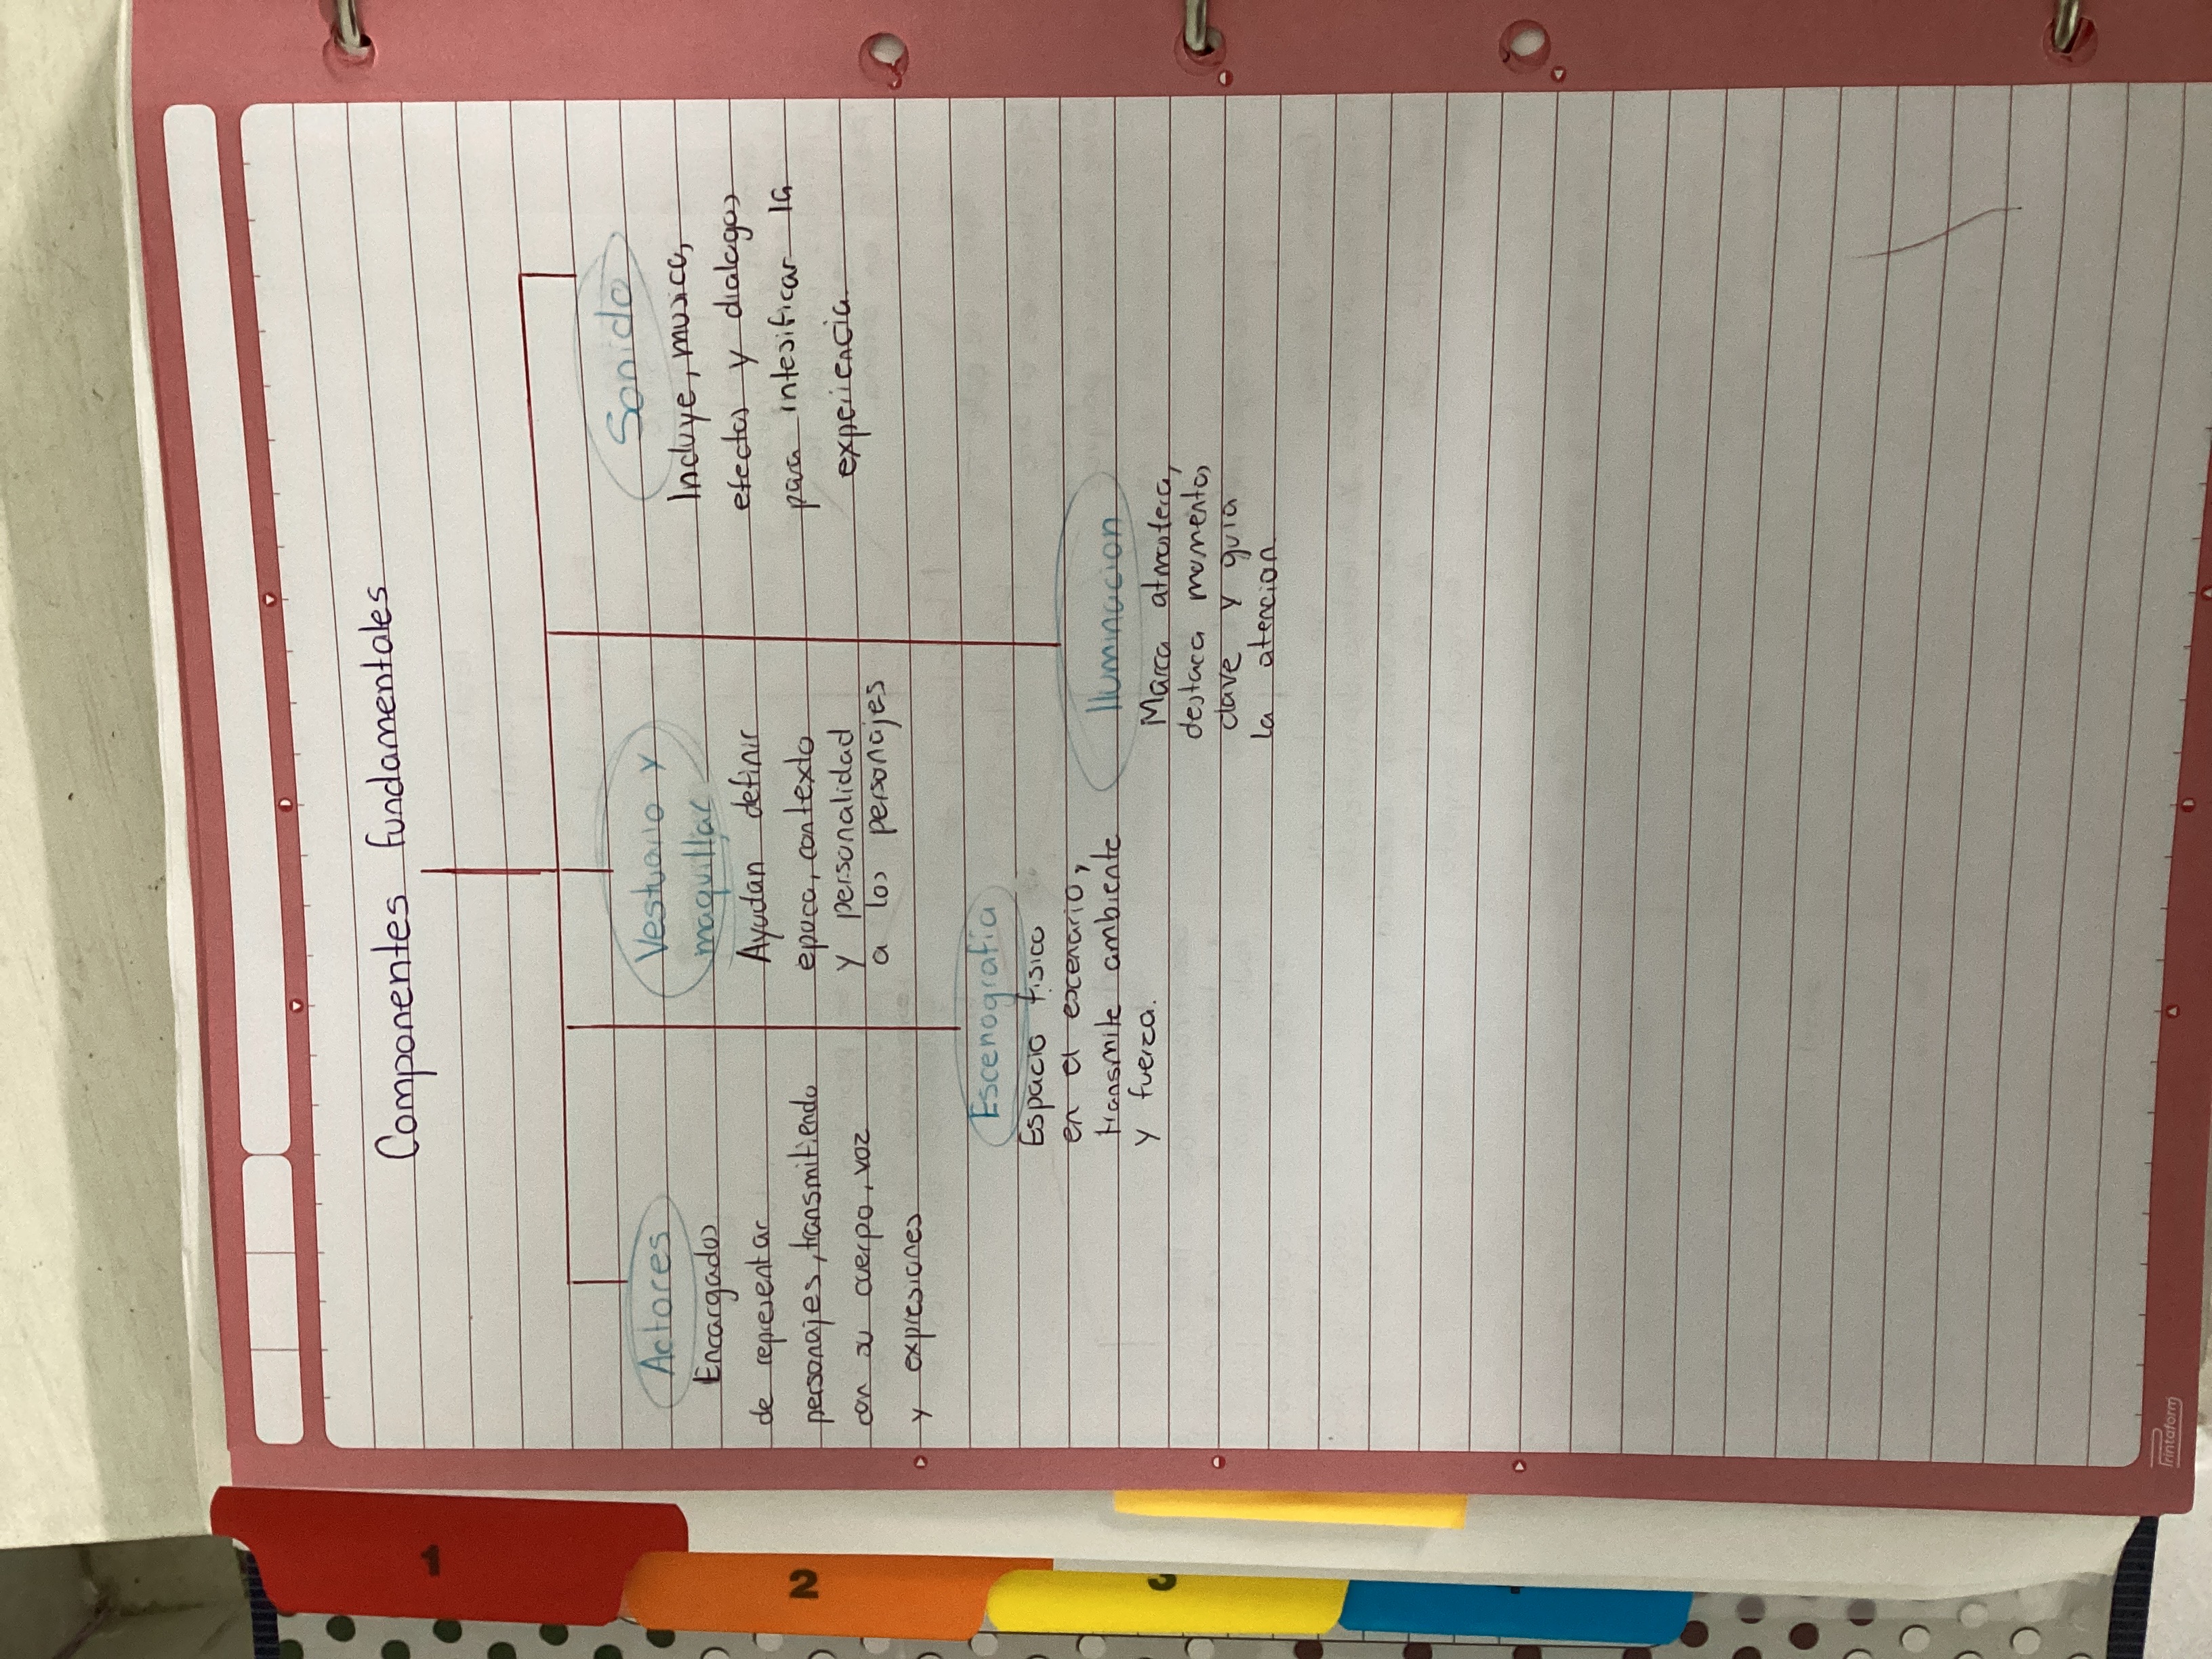 Componentes fundamentales
Actores
Encargados
de representar
personajes, transmitiendo
con su cuerpo, voz
y expresiones
Vestuario y
maquillar
Ayudan definir
epoca, contexto
y personalidad
a los personajes
Sonido
Incluye, musica,
efectos y dialogos
para intesificar la
experiencia.
Escenografia
Espacio fisico
en el escenario,
transmite ambiente
y fuerza.
Iluminacion
Marca atmosfera,
destaca momentos,
clave y guia
la atencion
Printaform
1
2
3